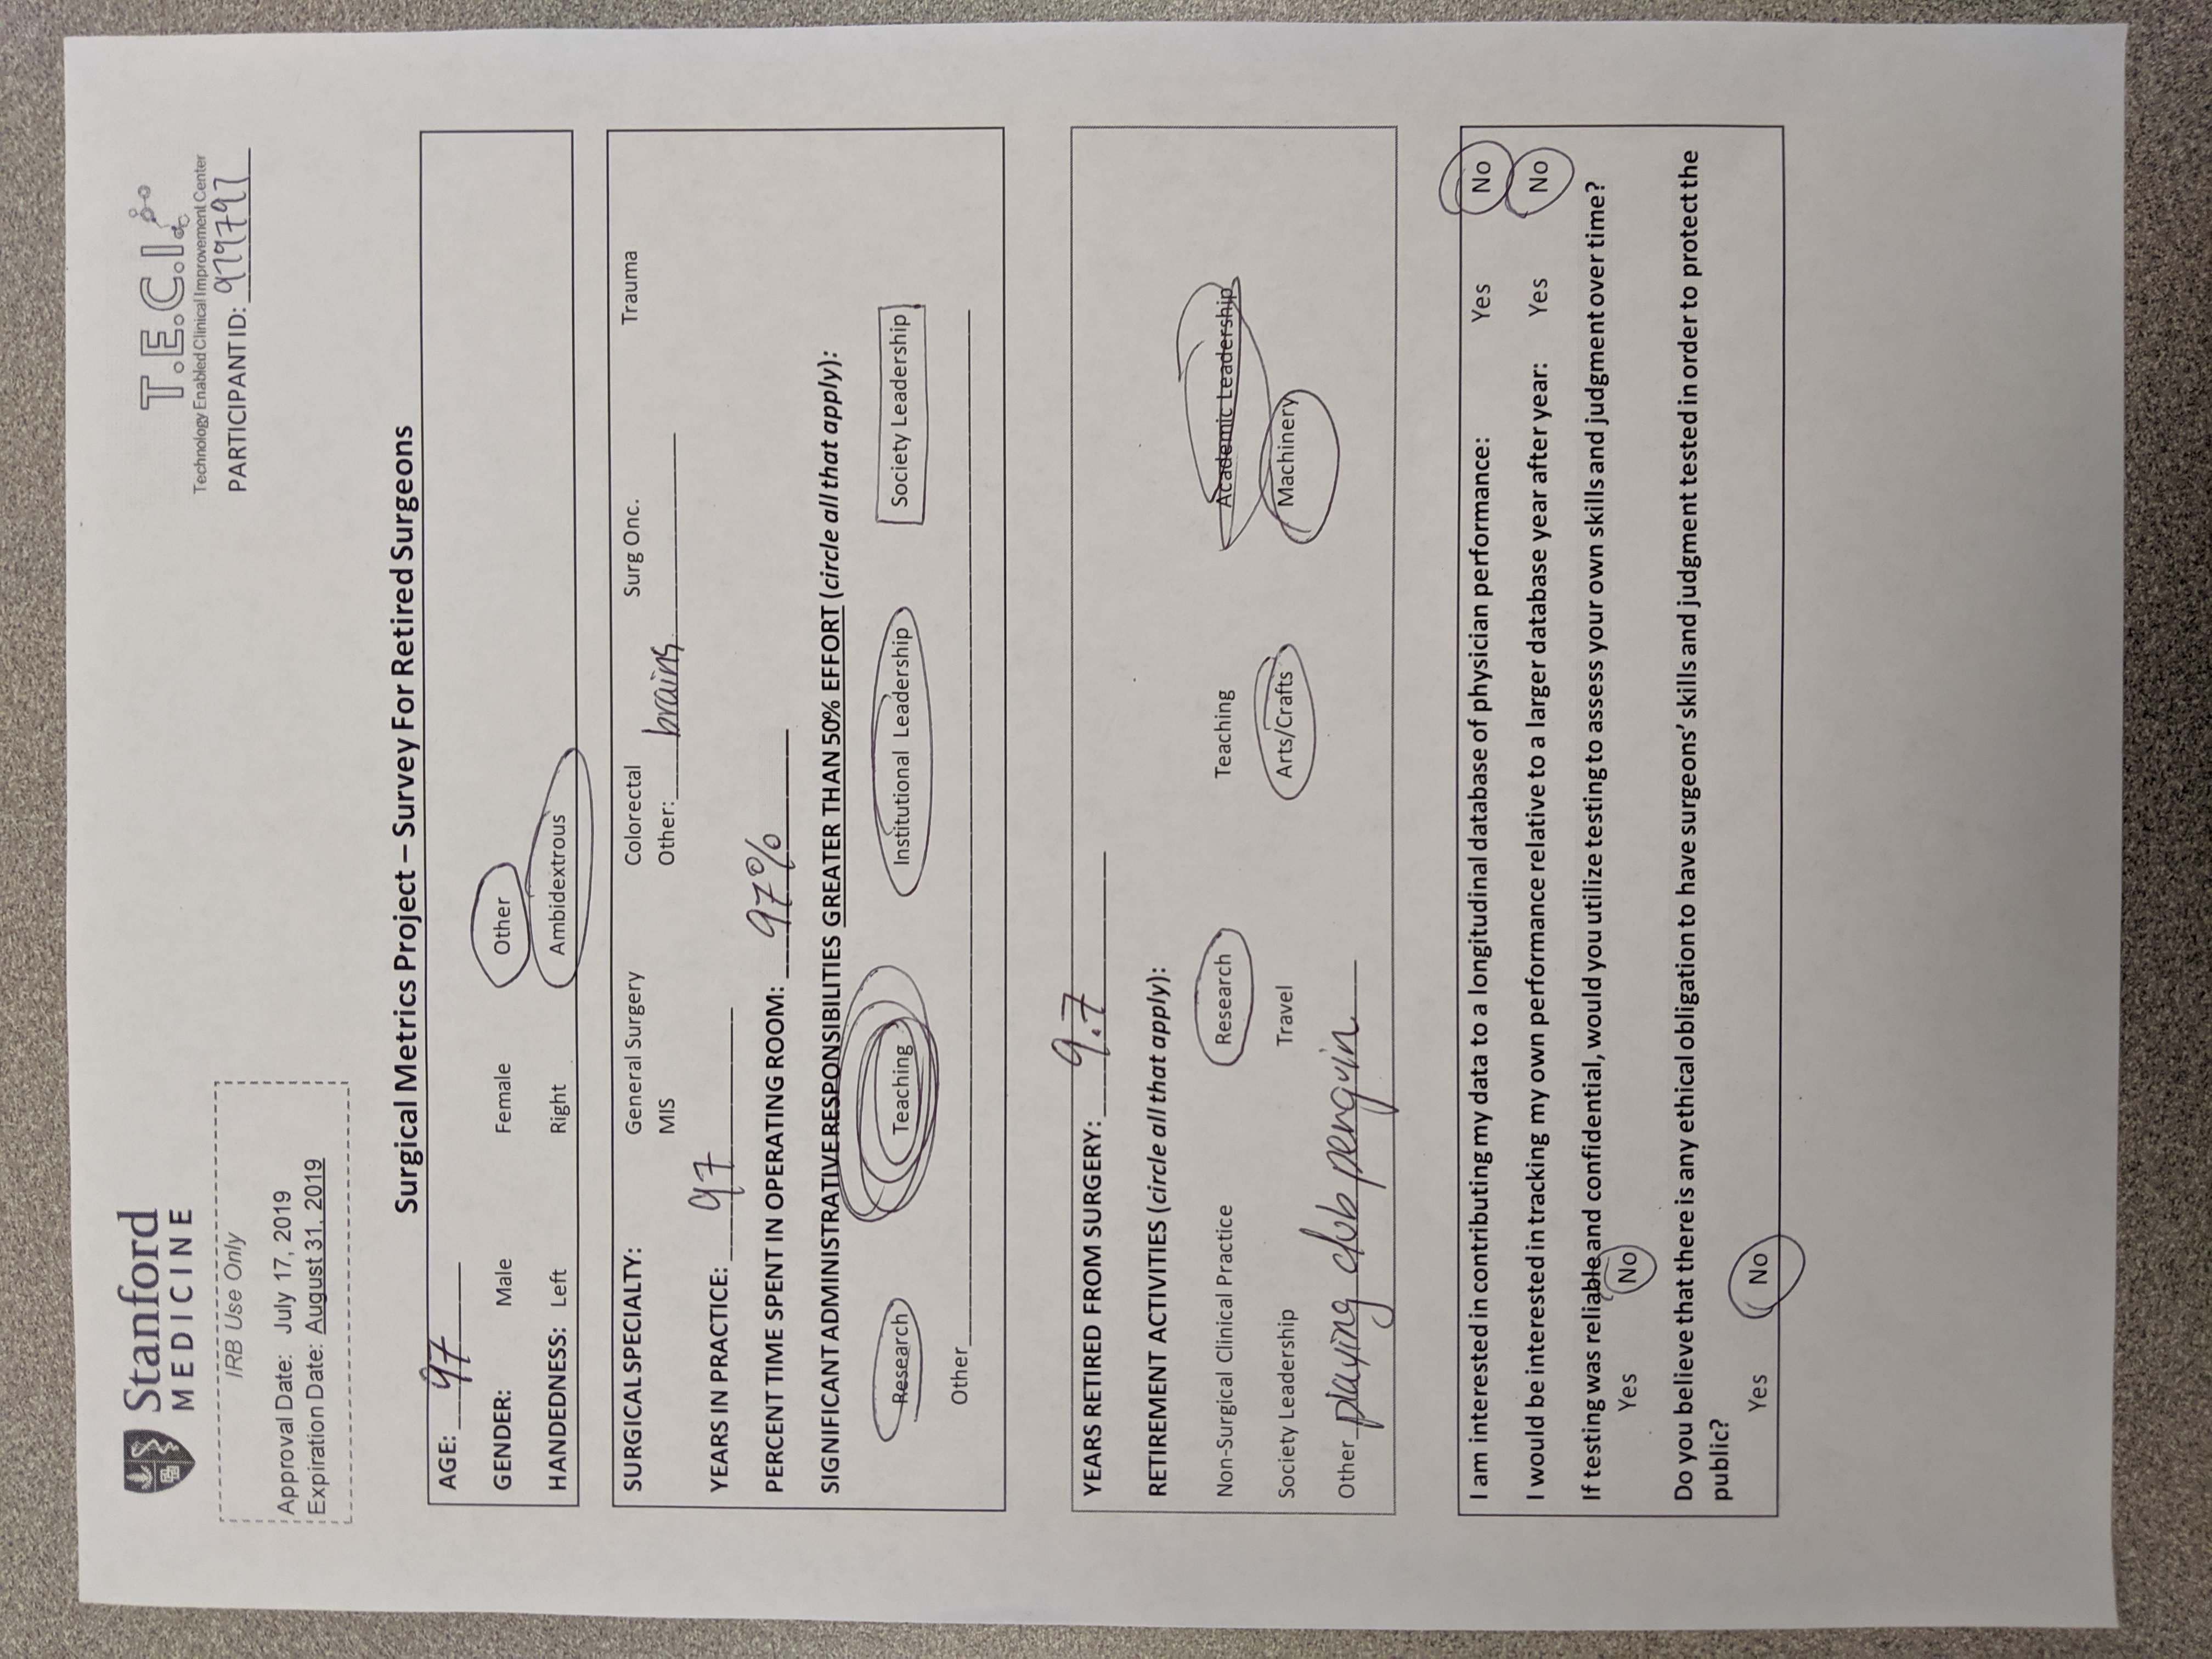 Stanford
MEDICINE
T.E.C.I.
Technology Enabled Clinical Improvement Center
PARTICIPANT ID: 979797
IRB Use Only
Approval Date: July 17, 2019
Expiration Date: August 31, 2019
Surgical Metrics Project – Survey For Retired Surgeons
AGE: 97
GENDER: Male Female Other
HANDEDNESS: Left Right Ambidextrous
SURGICAL SPECIALTY: General Surgery Colorectal Surg Onc. Trauma
MIS Other: brains
YEARS IN PRACTICE: 97
PERCENT TIME SPENT IN OPERATING ROOM: 97%
SIGNIFICANT ADMINISTRATIVE RESPONSIBILITIES GREATER THAN 50% EFFORT (circle all that apply):
Research Teaching Institutional Leadership Society Leadership
Other
YEARS RETIRED FROM SURGERY: 9.7
RETIREMENT ACTIVITIES (circle all that apply):
Non-Surgical Clinical Practice Research Teaching Academic Leadership
Society Leadership Travel Arts/Crafts Machinery
Other playing club penguin
I am interested in contributing my data to a longitudinal database of physician performance: Yes No
I would be interested in tracking my own performance relative to a larger database year after year: Yes No
If testing was reliable and confidential, would you utilize testing to assess your own skills and judgment over time?
Yes No
Do you believe that there is any ethical obligation to have surgeons’ skills and judgment tested in order to protect the
public?
Yes No